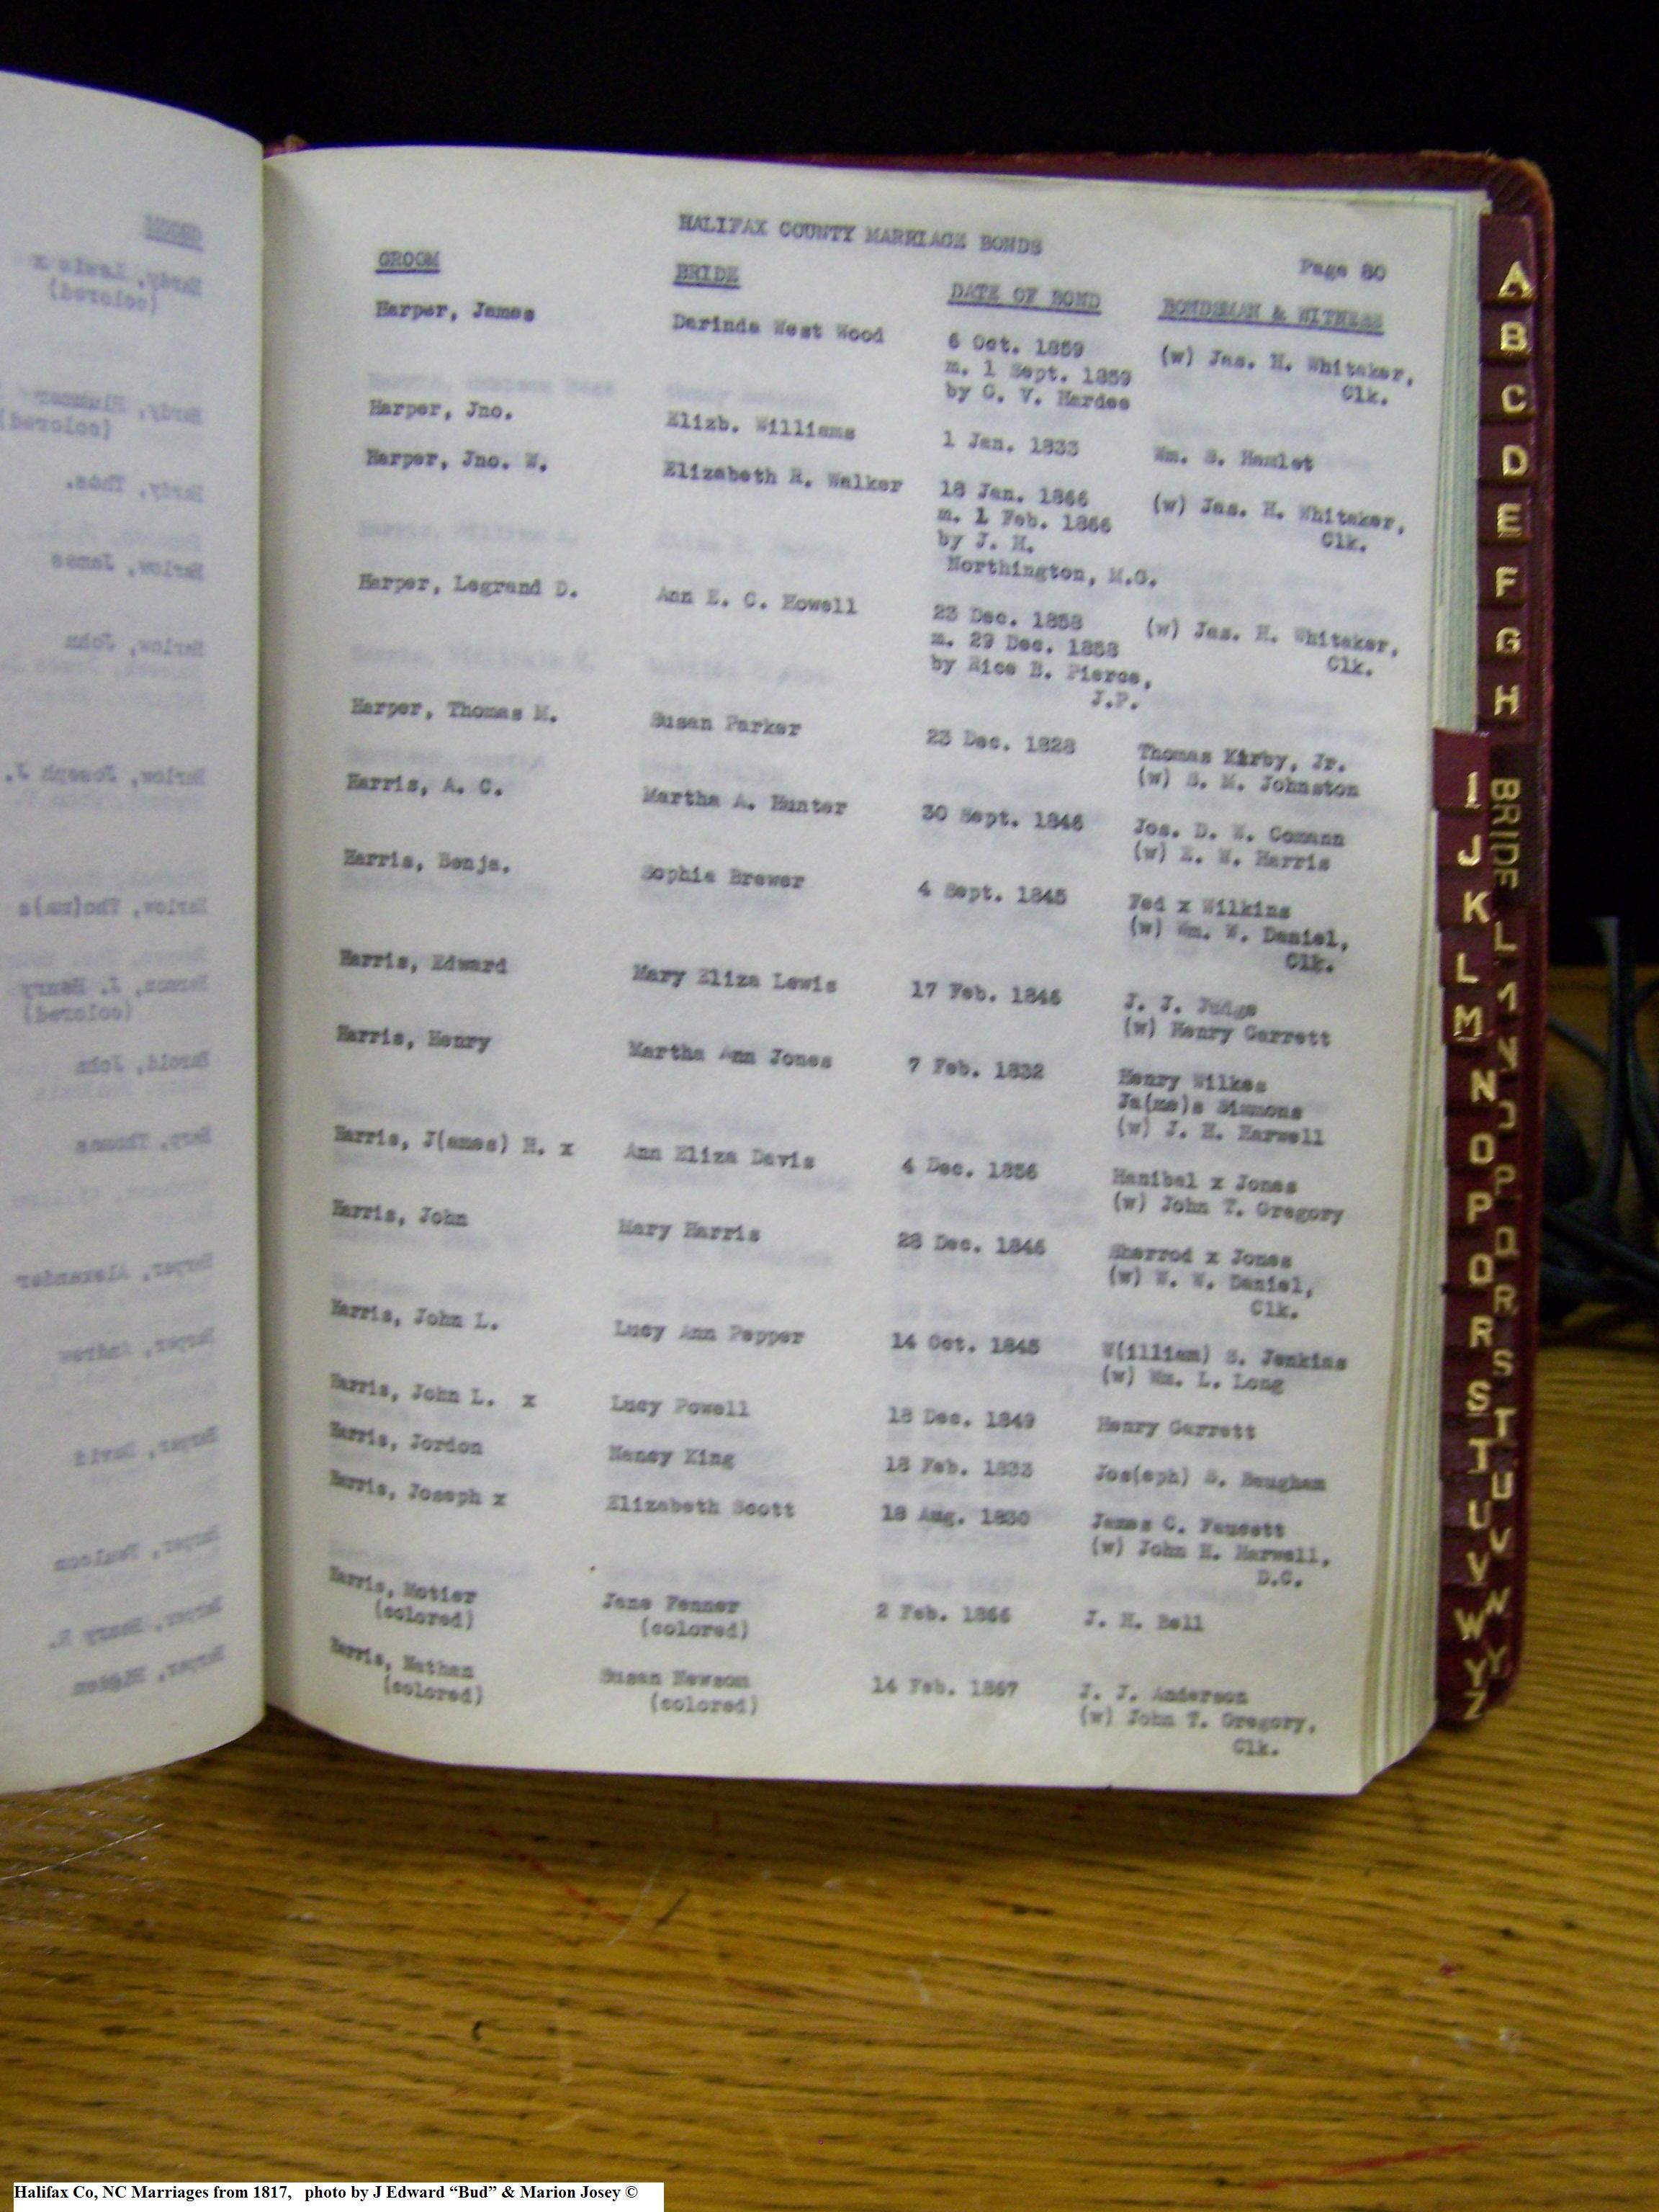 HALIFAX COUNTY MARRIAGE BONDS
Page 80
GROOM BRIDE DATE OF BOND BONDSMAN & WITNESS
Harper, James Darinda West Wood 6 Oct. 1859 (w) Jas. H. Whitaker,
m. 1 Sept. 1859 Clk.
by G. V. Hardee
Harper, Jno. Elizb. Williams 1 Jan. 1833 Wm. S. Hamlet
Harper, Jno. W. Elizabeth R. Walker 18 Jan. 1866 (w) Jas. H. Whitaker,
m. 1 Feb. 1866 Clk.
by J. H.
Northington, M.G.
Harper, Legrand D. Ann E. C. Howell 23 Dec. 1858 (w) Jas. H. Whitaker,
m. 29 Dec. 1858 Clk.
by Rice B. Pierce,
J.P.
Harper, Thomas M. Susan Parker 23 Dec. 1828 Thomas Kirby, Jr.
(w) S. M. Johnston
Harris, A. C. Martha A. Hunter 30 Sept. 1846 Jos. D. W. Gomann
(w) E. W. Harris
Harris, Benja. Sophia Brewer 4 Sept. 1845 Fed x Wilkins
(w) Wm. W. Daniel,
Clk.
Harris, Edward Mary Eliza Lewis 17 Feb. 1846 J. J. Judge
(w) Henry Garrett
Harris, Henry Martha Ann Jones 7 Feb. 1832 Henry Wilkes
Ja(me)s Simmons
(w) J. H. Harwell
Harris, J(ames) H. x Ann Eliza Davis 4 Dec. 1856 Hanibal x Jones
(w) John T. Gregory
Harris, John Mary Harris 28 Dec. 1846 Sherrod x Jones
(w) W. W. Daniel,
Clk.
Harris, John L. Lucy Ann Pepper 14 Oct. 1845 W(illiam) S. Jenkins
(w) Wm. L. Long
Harris, John L. x Lucy Powell 18 Dec. 1849 Henry Garrett
Harris, Jordon Nancy King 18 Feb. 1833 Jos(eph) S. Baugham
Harris, Joseph x Elizabeth Scott 18 Aug. 1830 James G. Faucett
(w) John H. Harwell,
D.C.
Harris, Motier Jane Fenner 2 Feb. 1866 J. H. Bell
(colored) (colored)
Harris, Nathan Susan Newsom 14 Feb. 1867 J. J. Anderson
(colored) (colored) (w) John T. Gregory,
Clk.
A
B
C
D
E
F
G
H
I
J
K
L
M
N
O
P
Q
R
S
T
U
V
W
Y
Z
BRIDE
Halifax Co, NC Marriages from 1817, photo by J Edward “Bud” & Marion Josey ©